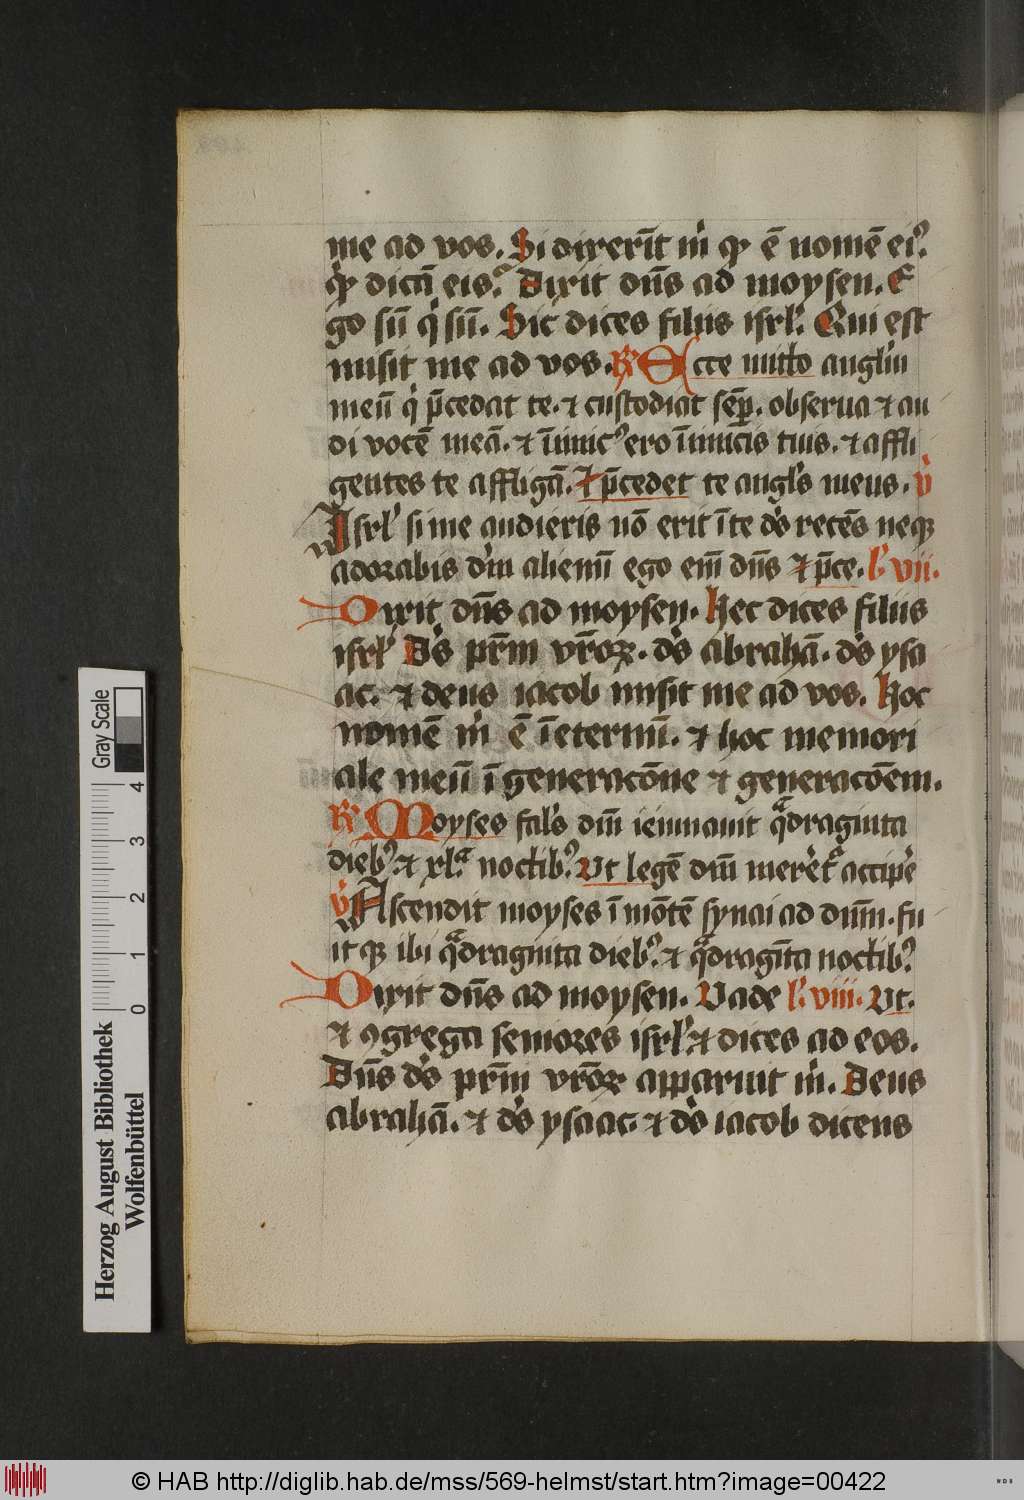 me ad vos. Si dixerīt m̄ qͩ ē nomē ei⁹
qͥd dicā eis? Dixit dn̄s ad moysen. E
go sū qͥ sū. Sic dices filiis isrl̓. Qui est
misit me ad vos. R̄ Ecce mitto angl̓m
meū qͥ p̄cedat te. ⁊ custodiat semꝑ. obserua ⁊ au
di vocē meā. ⁊ īimic⁹ ero īimicis tuis. ⁊ affli
gentes te affligā. Et p̄cedet te angl̓s meus. v̓
Isrl̓ si me audieris nō erit ī te ds̓ recēs neqꝫ
adorabis dm̓ alienū ego em̄ dn̄s Et p̄ce. l̓. vii.
Dixit dn̄s ad moysen. Hec dices filiis
isrl̓ Ds̓ pr̄m vr̄oꝝ. ds̓ abrahā. ds̓ ysa
ac. ⁊ deus iacob misit me ad vos. Hoc
nomē m̓ ē ī eternū. ⁊ hoc memori
ale meū ī generacōne ⁊ generacōem.
R̄ Moyses fal̓s dn̄i ieiunauit qͣdraginta
dieb⁹ ⁊ xl.ͣ noctib⁹ Ut legē dn̄i meret̓ͬ accipe̓
v̓ Ascendit moyses ī mōtē synai ad dn̄m. fu
it qꝫ ibi qͣdraginta dieb⁹. ⁊ qͣdragīta noctib⁹
Dixit dn̄s ad moysen. Vade l̓. viii. Ut.
⁊ ꝯgrega seniores isrl̓. ⁊ dices ad eos.
Dn̄s ds̓ pr̄m vr̄oꝝ apparuit m̓. Deus
abrahā. ⁊ ds̓ ysaac. ⁊ ds̓ iacob dicens
Gray Scale
0 1 2 3 4
Herzog August Bibliothek
Wolfenbüttel
© HAB http://diglib.hab.de/mss/569-helmst/start.htm?image=00422